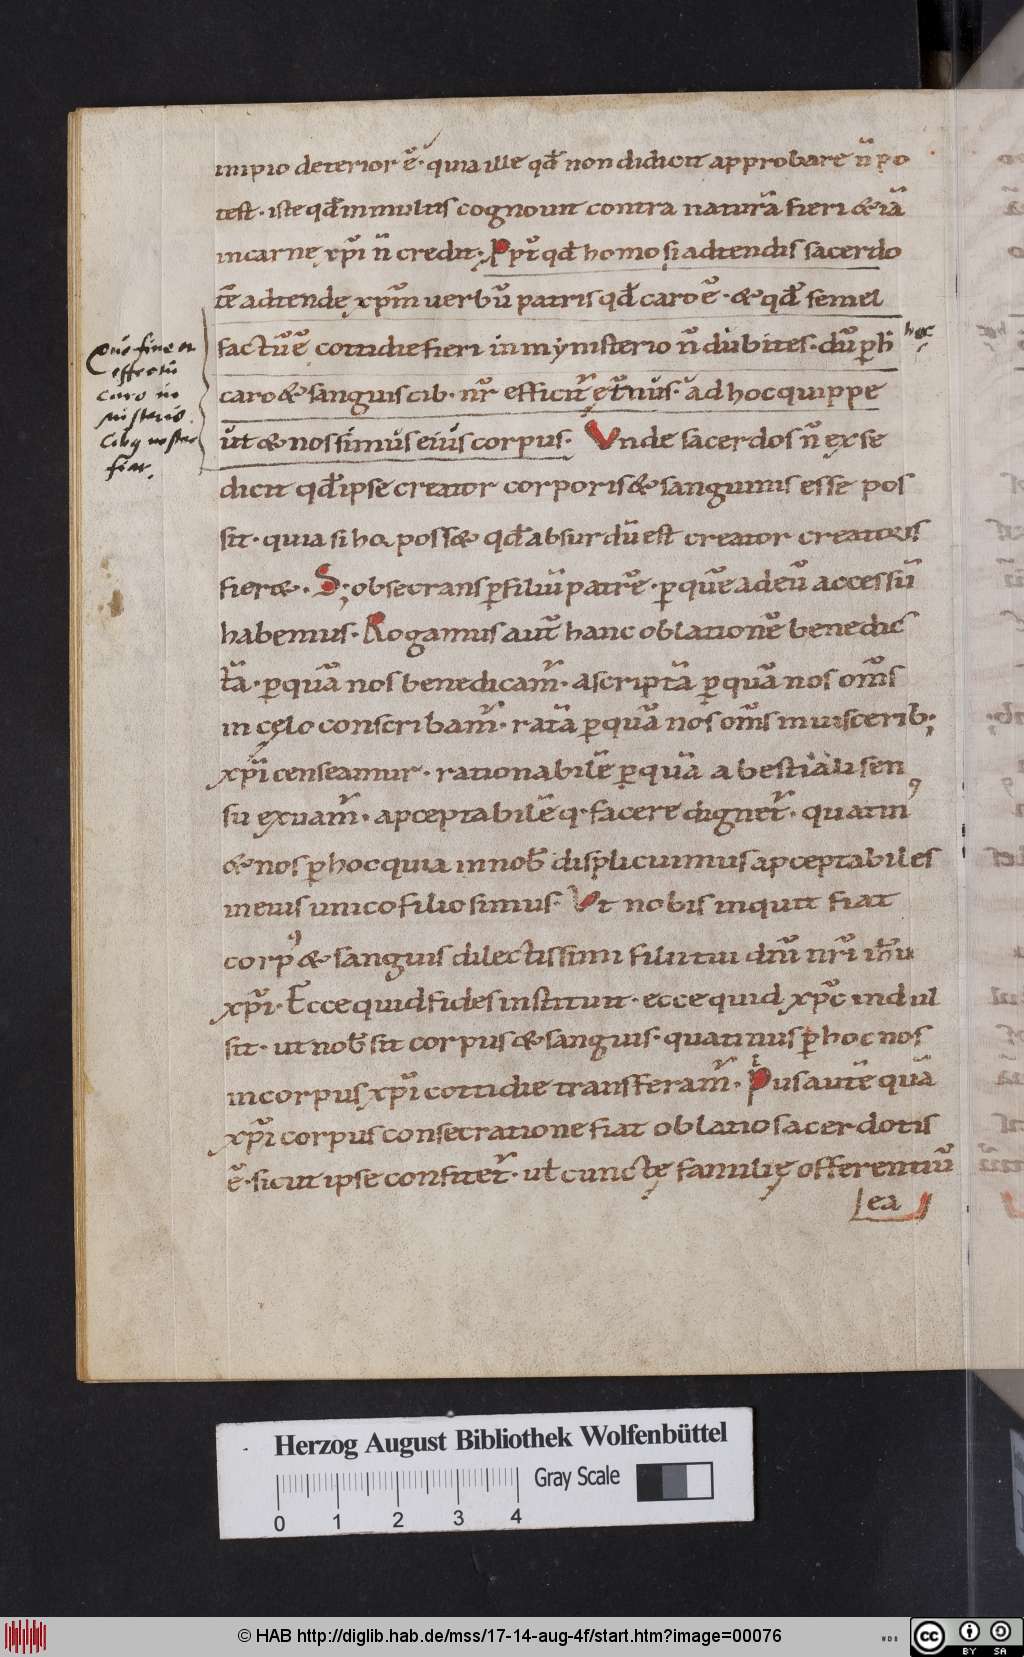 impio deterior ē· quia ille qđ non didicit approbare n̄ po
test· iste qđ in multis cognouit contra naturā fieri & iā
in carnę xp̄i n̄ credit· Ppt̄ qđ homo si adtendis sacerdo
tē adtende xp̄m uerbū patris qđ caro ē· & qđ semel
factū ē cottidie fieri in mynisterio n̄ dubites· dū p̱ h hoc
caro & sanguis cib· nr̄ efficit᷑ ęt̄nus· ad hoc quippe
ut & nos simus eius corpus· Vnde sacerdos n̄ ex se
dicit qđ ipse creator corporis & sanguinis esse pos
sit· quia si hoc poss& qđ absurdū est creator creatoris
fier&· S; obsecrans p̱ filiū patrē· p̱ quē ad eū accessū
habemus· Rogamus aut̄ hanc oblationē benedic
tā· p̱ quā nos benedicam᷑· ascriptā p̱ quā nos om̄s
in cęlo conscribam᷑· ratā p̱ quā nos om̄s in uiscerib;
xp̄i censeamur· rationabilē p̱ quā a bestiali sen
su exuam᷑· apceptabilē q· facere dignet᷑· quatinꝰ
& nos p̱ hoc quia in nob̄ displicuimus apceptabiles
in eius unico filio simus· Vt nobis inquit fiat
corpꝰ & sanguis dilectissimi filii tui dn̄i nr̄i ih̄u
xp̄i· Ecce quid fides instituit· ecce quid xp̄c indul
sit· ut nob̄ sit corpus & sanguis· quatinus p̱ hoc nos
in corpus xp̄i cottidie transferam᷑· Pius autē quā
xp̄i corpus consecratione fiat oblatio sacerdotis
ē· sicut ipse confitet᷑· ul̄ cunctę familię offerentiū
ea
quo fine et
effectu
caro in
misterio
cibꝰ noster
fiat.
Herzog August Bibliothek Wolfenbüttel
Gray Scale
0 1 2 3 4
© HAB http://diglib.hab.de/mss/17-14-aug-4f/start.htm?image=00076
WDB
cc BY SA